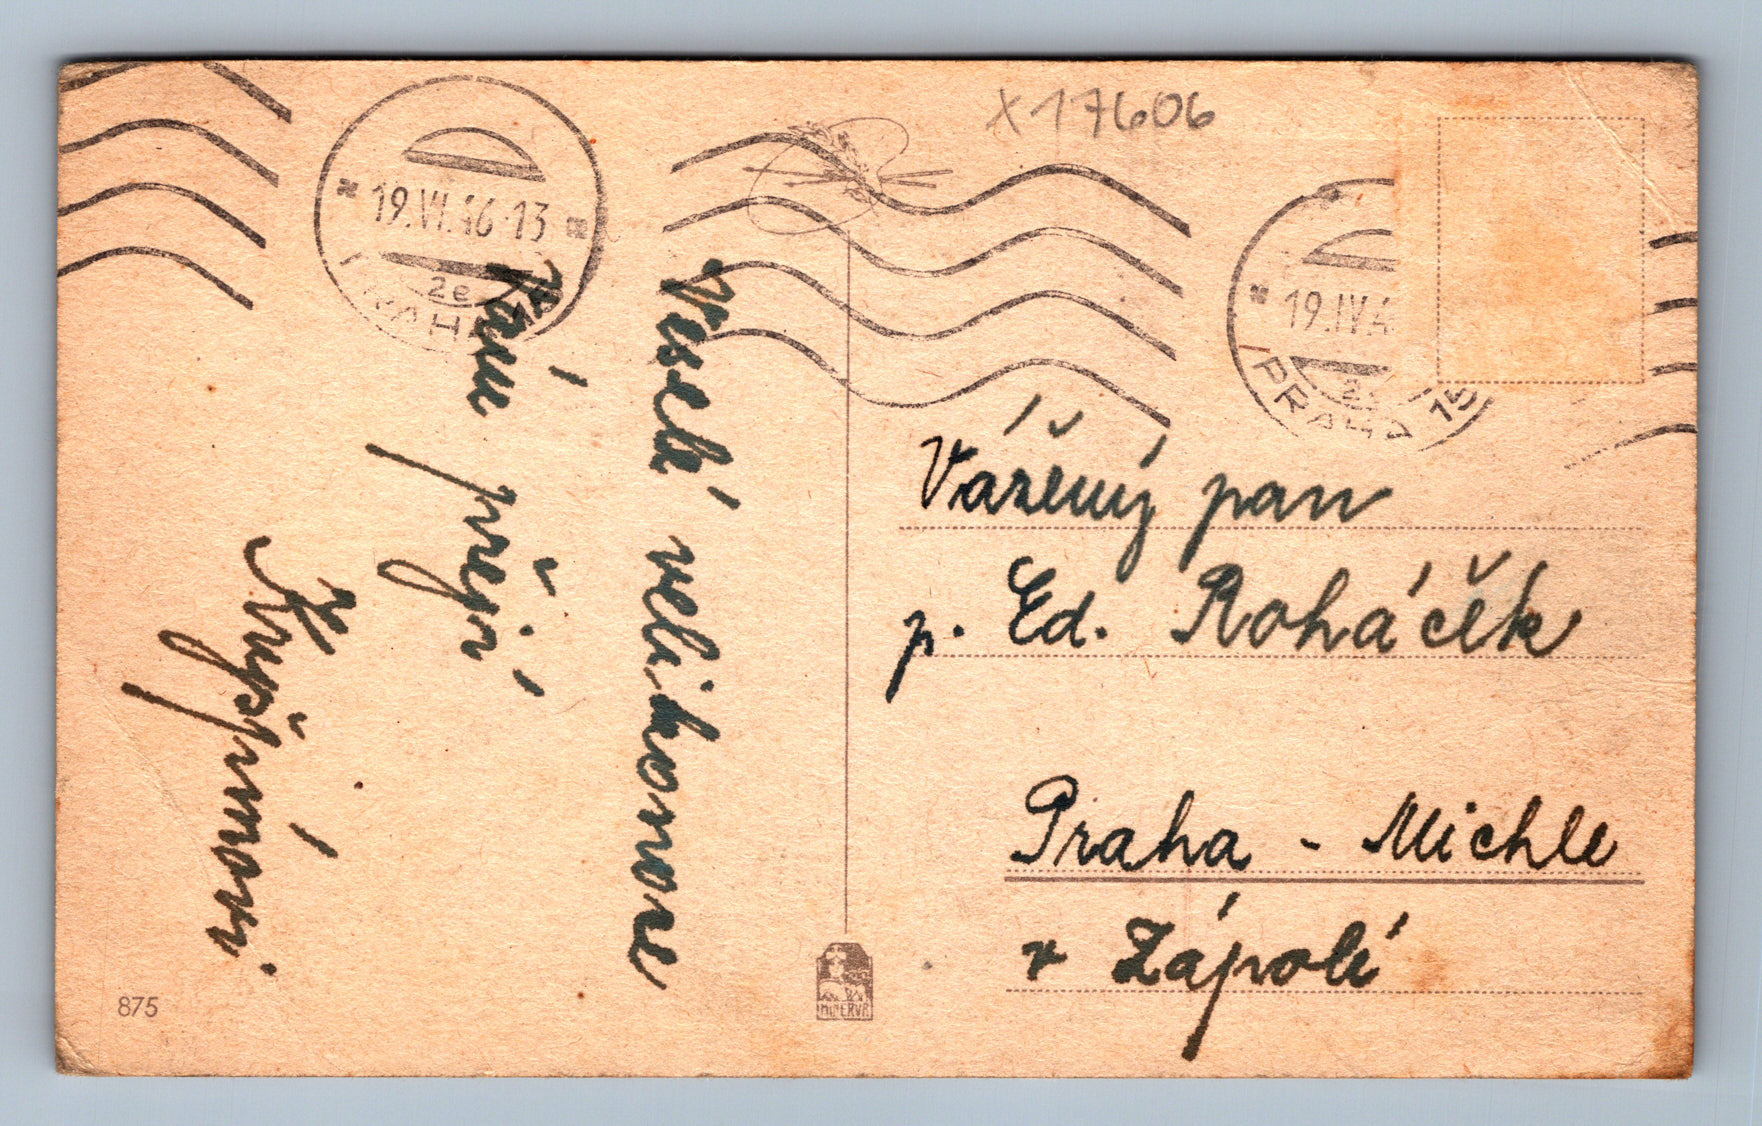 x17606
19.VI.46-13
2e
PRAHA 15
19.IV.4
PRAHA 15
Veselé velikonoce
přeji
Vážený pan
p. Ed. Roháček
Praha - Michle
v Zápolí
875
MINERVA